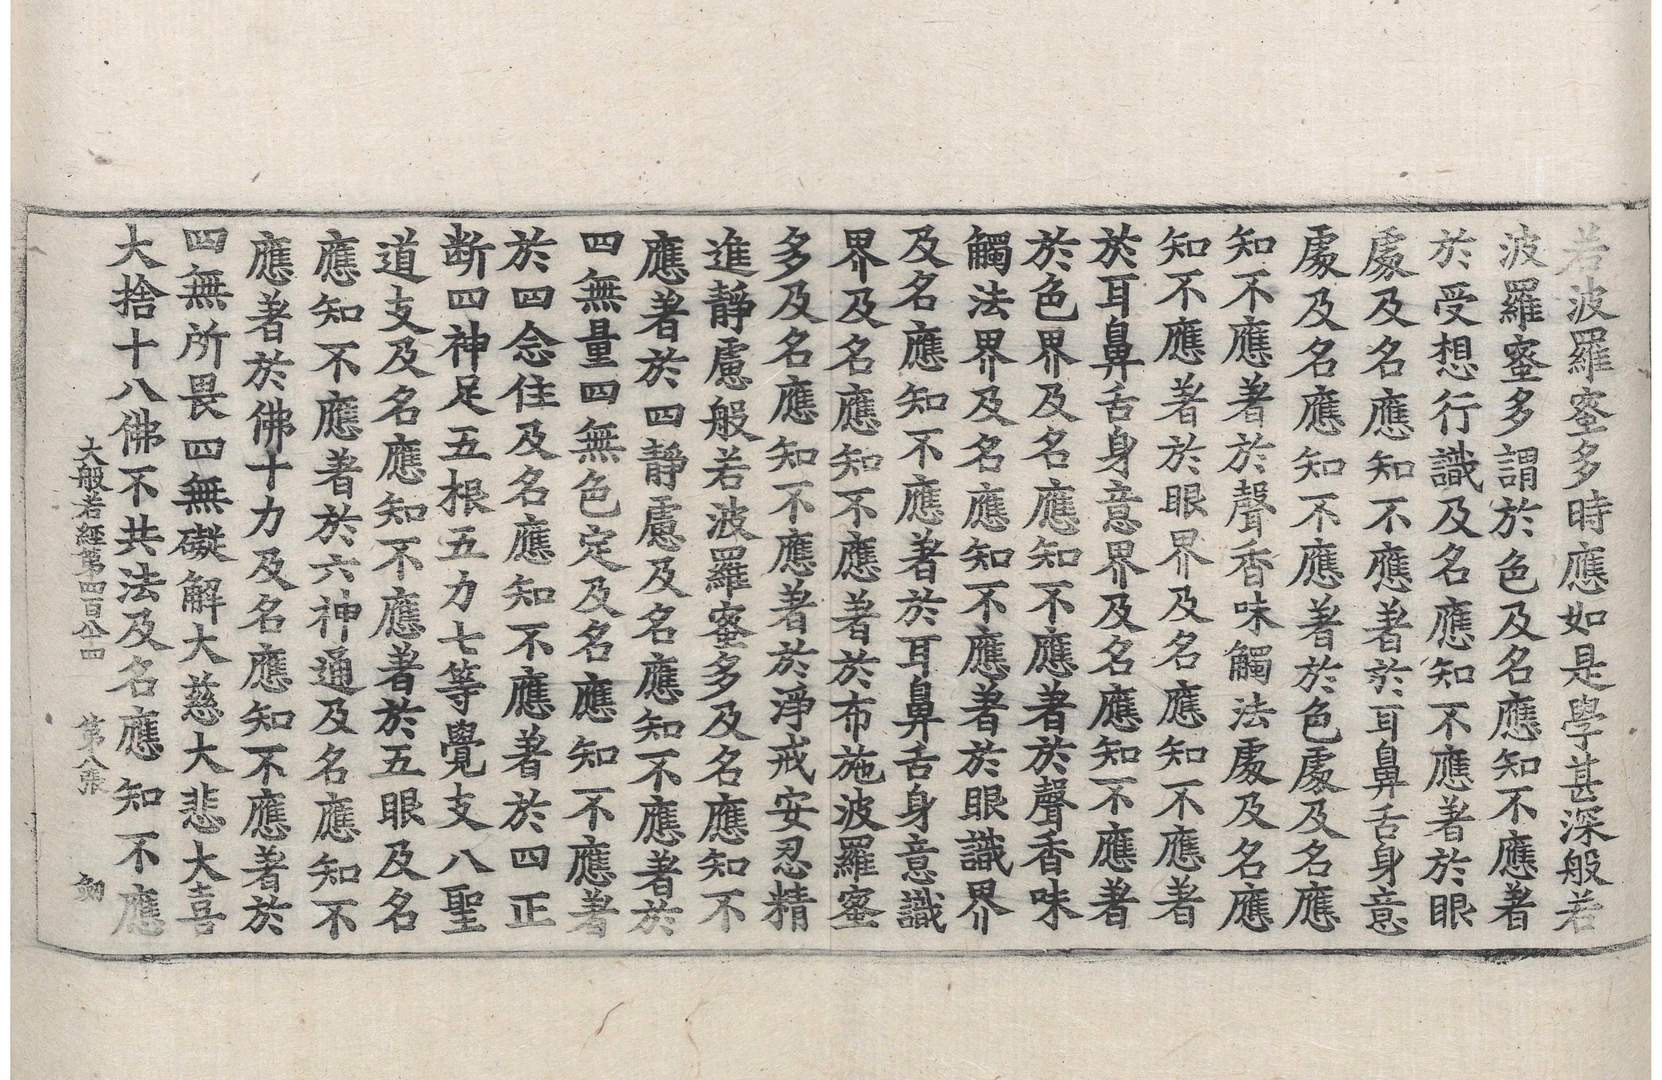 若波羅蜜多時應如是學甚深般若
波羅蜜多謂於色及名應知不應著
於受想行識及名應知不應著於眼
處及名應知不應著於耳鼻舌身意
處及名應知不應著於色處及名應
知不應著於聲香味觸法處及名應
知不應著於眼界及名應知不應著
於耳鼻舌身意界及名應知不應著
於色界及名應知不應著於聲香味
觸法界及名應知不應著於眼識界
及名應知不應著於耳鼻舌身意識
界及名應知不應著於布施波羅蜜
多及名應知不應著於淨戒安忍精
進靜慮般若波羅蜜多及名應知不
應著於四靜慮及名應知不應著於
四無量四無色定及名應知不應著
於四念住及名應知不應著於四正
断四神足五根五力七等覺支八聖
道支及名應知不應著於五眼及名
應知不應著於六神通及名應知不
應著於佛十力及名應知不應著於
四無所畏四無礙解大慈大悲大喜
大捨十八佛不共法及名應知不應
大般若經第四百八十四 第八張 劒